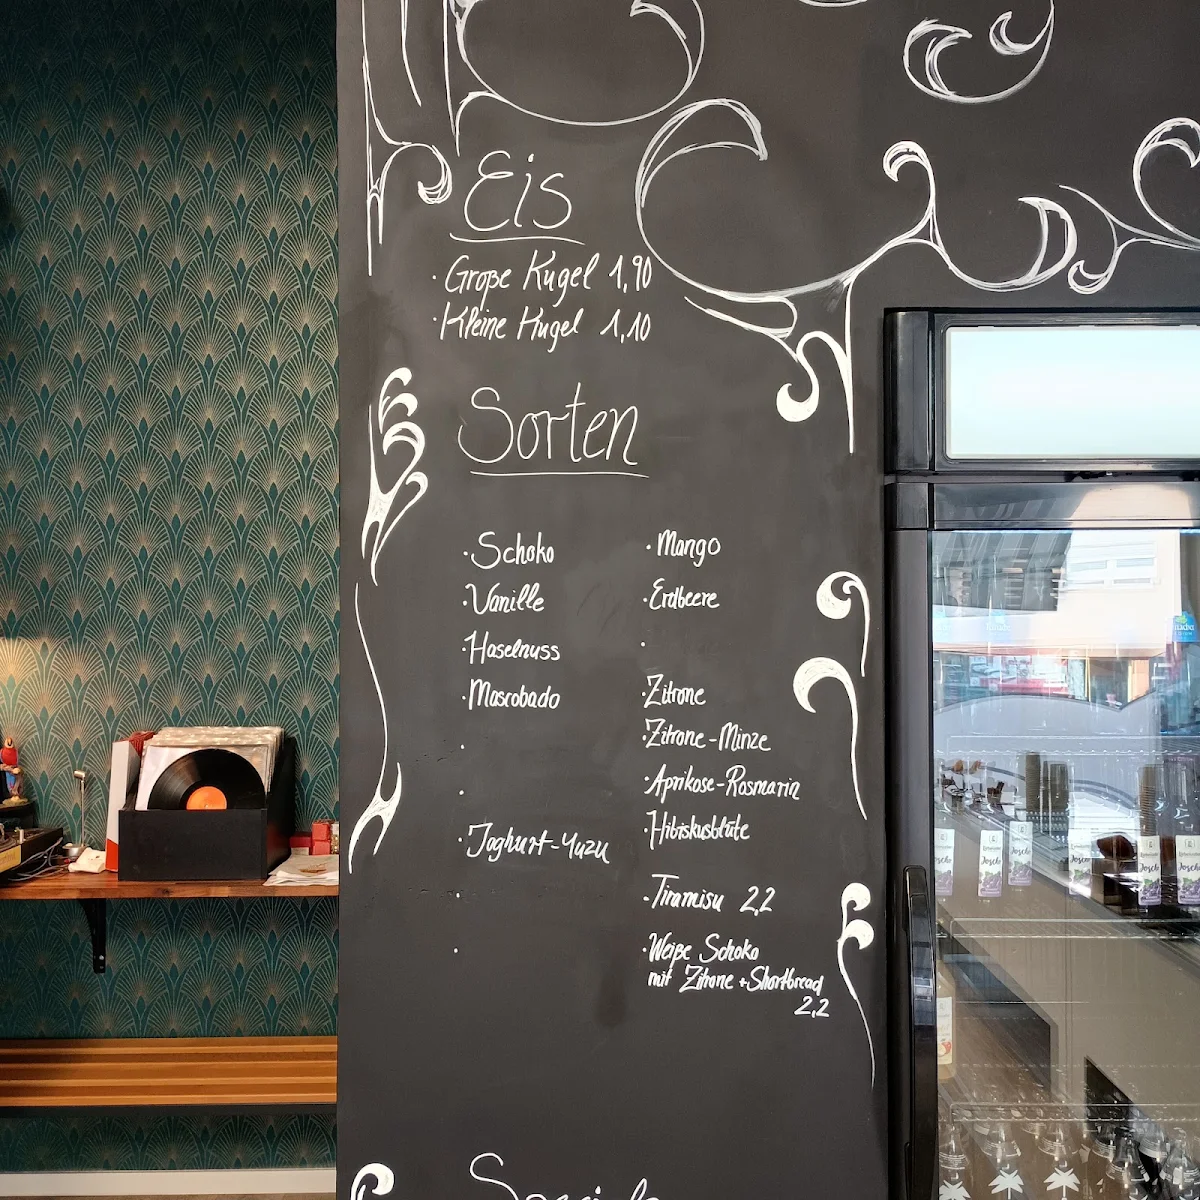 Eis
· Große Kugel 1,90
· Kleine Kugel 1,10
Sorten
· Schoko
· Vanille
· Haselnuss
· Mascobado
·
·
· Joghurt-Yuzu
·
·
· Mango
· Erdbeere
·
· Zitrone
· Zitrone-Minze
· Aprikose-Rosmarin
· Hibiskusblüte
· Tiramisu 2,2
· Weiße Schoko
mit Zitrone + Shortbread
2,2